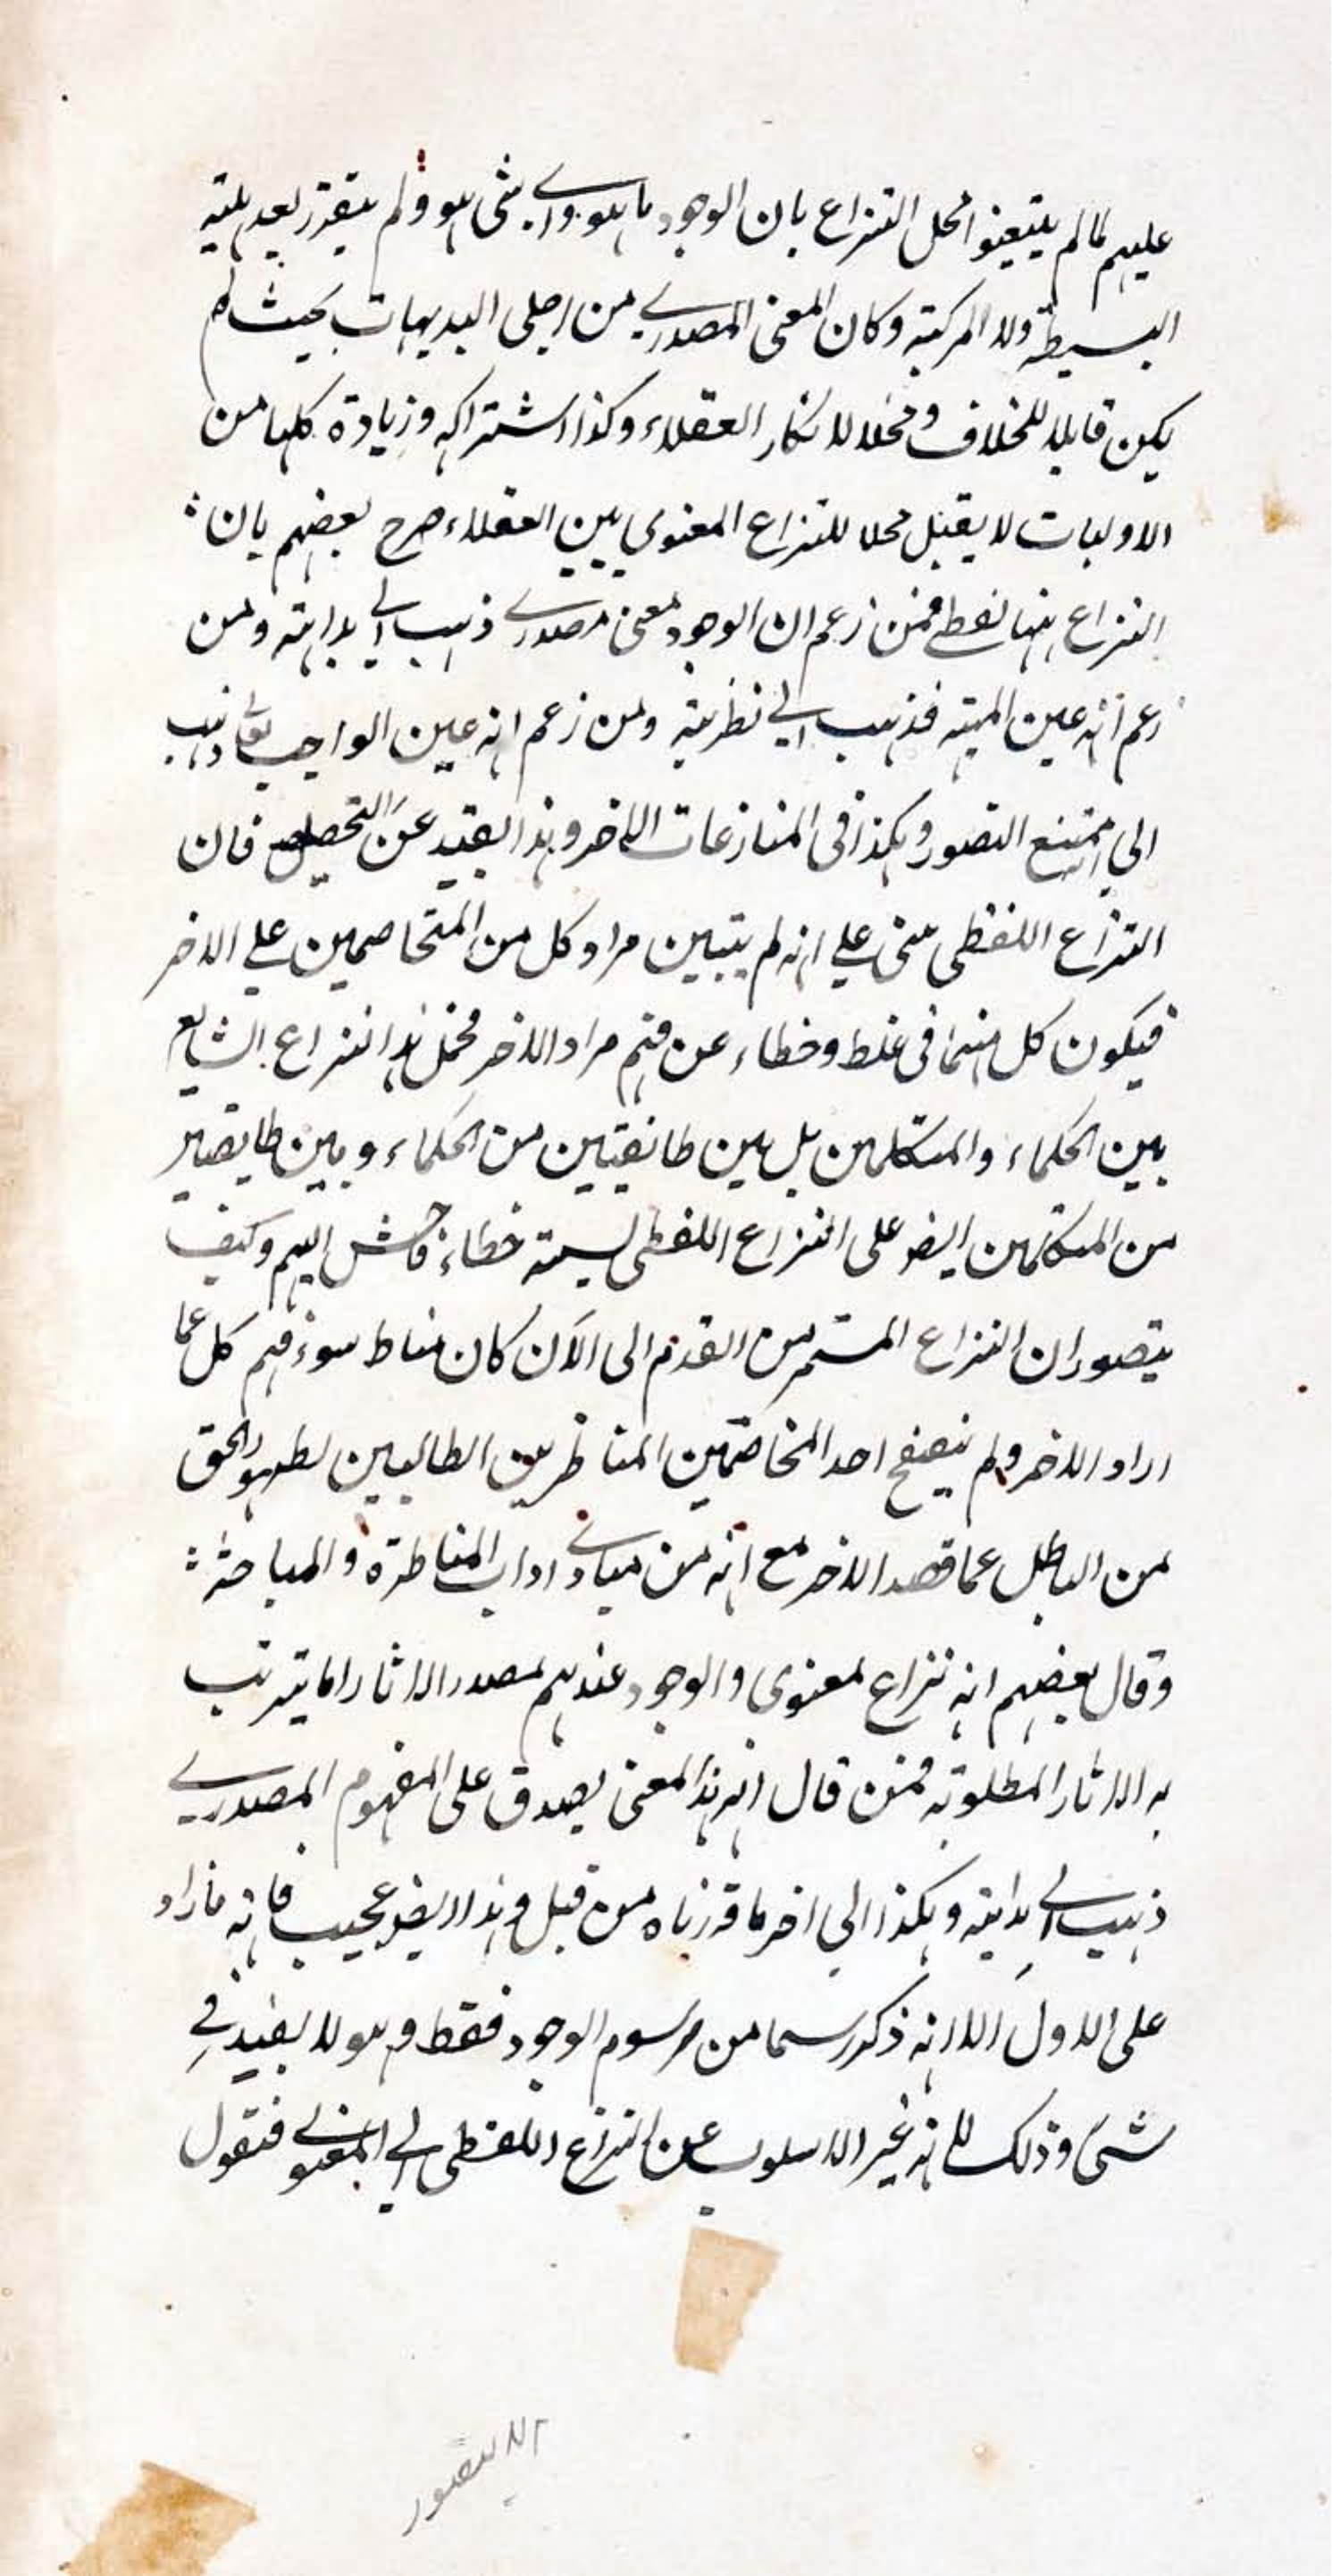 عليهم لما لم يتعينوا محل النزاع بان الوجود ما هو واي شى هو ولم يتقرر بعد هليته
البسيطة ولا المركبته وكان المعنى المصدرى من اجلى البديهات بحيث لم
يكن قابلا للخلاف ومحلا لانكار العقلاء وكذا اشتراكه وزيادة كلها من
الاوليات لا يقبل محلا للنزاع المعنوي بين العقلاء صرح بعضهم بان
النزاع ههنا لفظى فمن زعم ان الوجود معنى مصدرى ذهب الى بداهته ومن
زعم انه عين المهيته فذهب الى نظريته ومن زعم انه عين الواجب تعالى ذهب
الي ممتنع التصور وهكذا فى المنازعات الاخر وهذا بعيد عن التحصيل فان
النزاع اللفظى مبنى علي انه لم يتبين مراد كل من المتخاصمين علي الاخر
فيكون كل منهما فى غلط وخطاء عن فهم مراد الاخر فحمل هذا النزاع الشايع
بين الحكماء والمتكلمين بل بين طائفتين من الحكماء وبين طايفتين
من المتكلمين ايضو على النزاع اللفظى نسبته خطاء فاحش اليهم وكيف
يتصور ان النزاع المستمر من القدم الى الآن كان مناط سوء فهم كل عما
اراد الاخر ولم يتصفح احد المخاصمين المناظرين الطالبين لظهور الحق
من الباطل عما قصد الاخر مع انه من مبادى اداب المناظرة والمباحثة
وقال بعضهم انه نزاع معنوى والوجود عندهم مصدر الاثار اما يترتب
به الاثار المطلوبته فمن قال انه هذا المعنى يصدق على المفهوم المصدرى
ذهب الى بداهته وهكذا الي اخر ما قررناه من قبل وهذا ايضو عجيب فانه ما زاد
على الاول الا انه ذكر رسما من رسوم الوجود فقط وهو لا يفيد فى
شىء وذلك لانه غير الاسلوب عن النزاع اللفظى الى المعنوى فنقول
الا يتصور